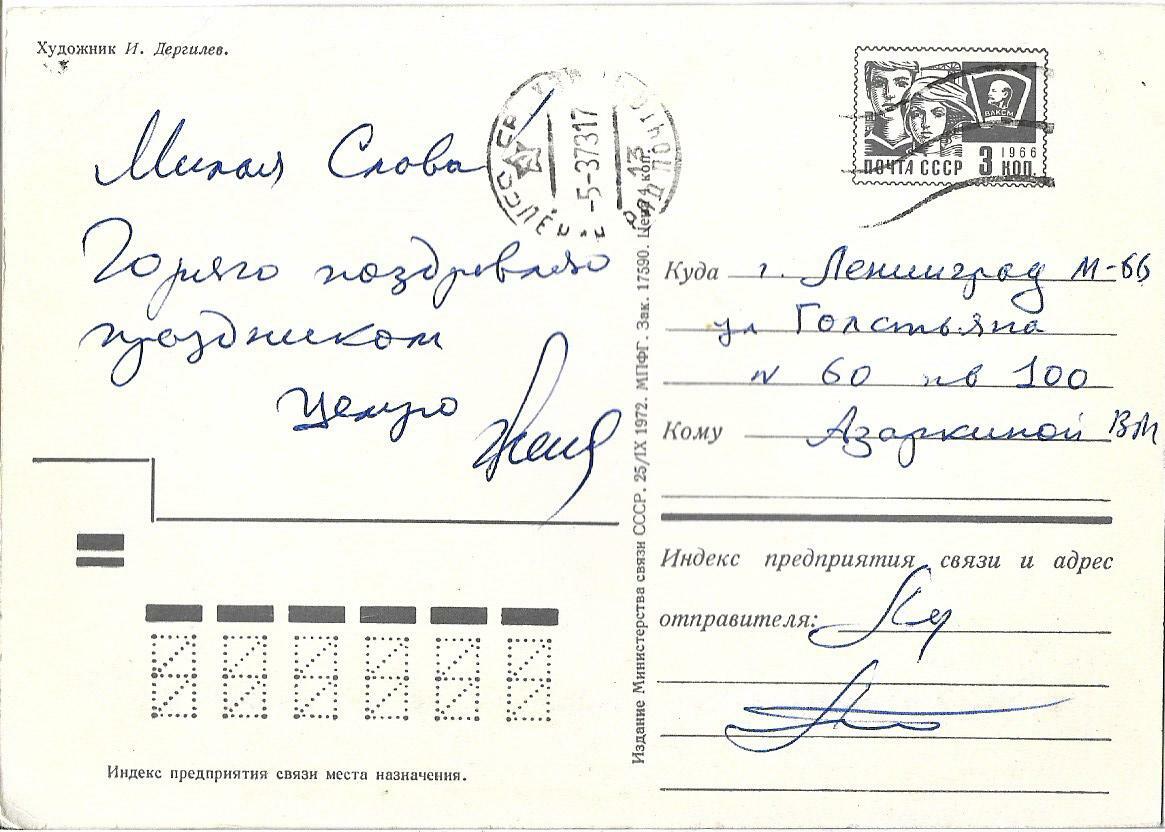 Художник И. Дергилев.
Милая Слава
Горячо поздравляю
праздником
Целую
Женя
-5-37317
13
ВЛКСМ
1966
ПОЧТА СССР 3 КОП.
Куда г. Ленинград М-66
ул Голстьяна
N 60 кв 100
Кому Азаркиной ВМ
Индекс предприятия связи и адрес
отправителя:
Издание Министерства связи СССР. 25/IX 1972. МПФГ. Зак. 17590. Цена 4 коп.
Индекс предприятия связи места назначения.